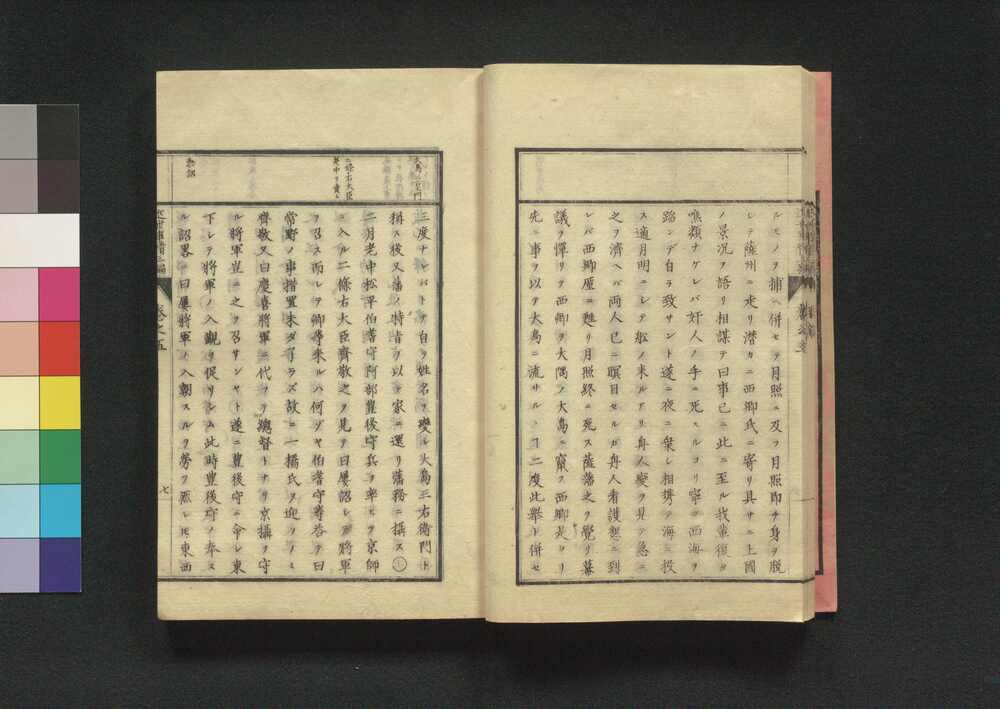 ルモノヲ捕ヘ併セテ月照ニ及フ月照即チ身ヲ脱
シテ薩州ニ走リ潜カニ西郷氏ニ寄リ具サニ上國
ノ景況ヲ語リ相謀テ曰事已ニ此ニ至ル我輩復タ
噍類ナケレバ奸人ノ手ニ死スルヨリ寧ロ西海ヲ
踏ンデ自ラ致サント遂ニ夜ニ乗シ相携テ海ニ投
ス適月明ニシテ舩ノ来ルアリ舟人変ヲ見テ急ニ
之ヲ濟ヘバ両人已ニ瞑目セルガ舟人看護懇ニ到
レバ西郷厪ニ甦リ月照終ニ死ス薩藩之ヲ覺リ幕
議ヲ憚リテ西郷ヲ大隅ノ大島ニ竄ス西郷是ヨリ
先ニ事ヲ以テ大島ニ流サルヽコ二度此擧ト併セ
大島三右衛門
三度ナレバトテ自ラ姓名ヲ變シ大島三右衛門ト
稱ス後又藩ノ特旨ヲ以テ家ニ還リ藩務ニ攝ス
二月老中松平伯耆守阿部豊後守兵ヲ率ヒテ京師
二條右大臣老中ヲ責ム
ニ入ル二條右大臣齊敬之ヲ見テ曰屢詔シテ將軍
ヲ召ス而シテ卿等来ルハ何ゾヤ伯耆守等答テ曰
常野ノ事措置未ダ了ラズ故ニ一橋氏ヲ迎フノミ
齊敬又曰慶喜將軍ニ代ツテ總督トナリ京攝ヲ守
ル將軍豈ニ之ヲ召サンヤト遂ニ豊後守ニ命シ東
下シテ將軍ノ入覲ヲ促サシム此時豊後守ノ奉ス
勅詔
ル詔畧ニ曰屢將軍ノ入朝スルヲ勞ヲ照シ氏東西
巻之五
七